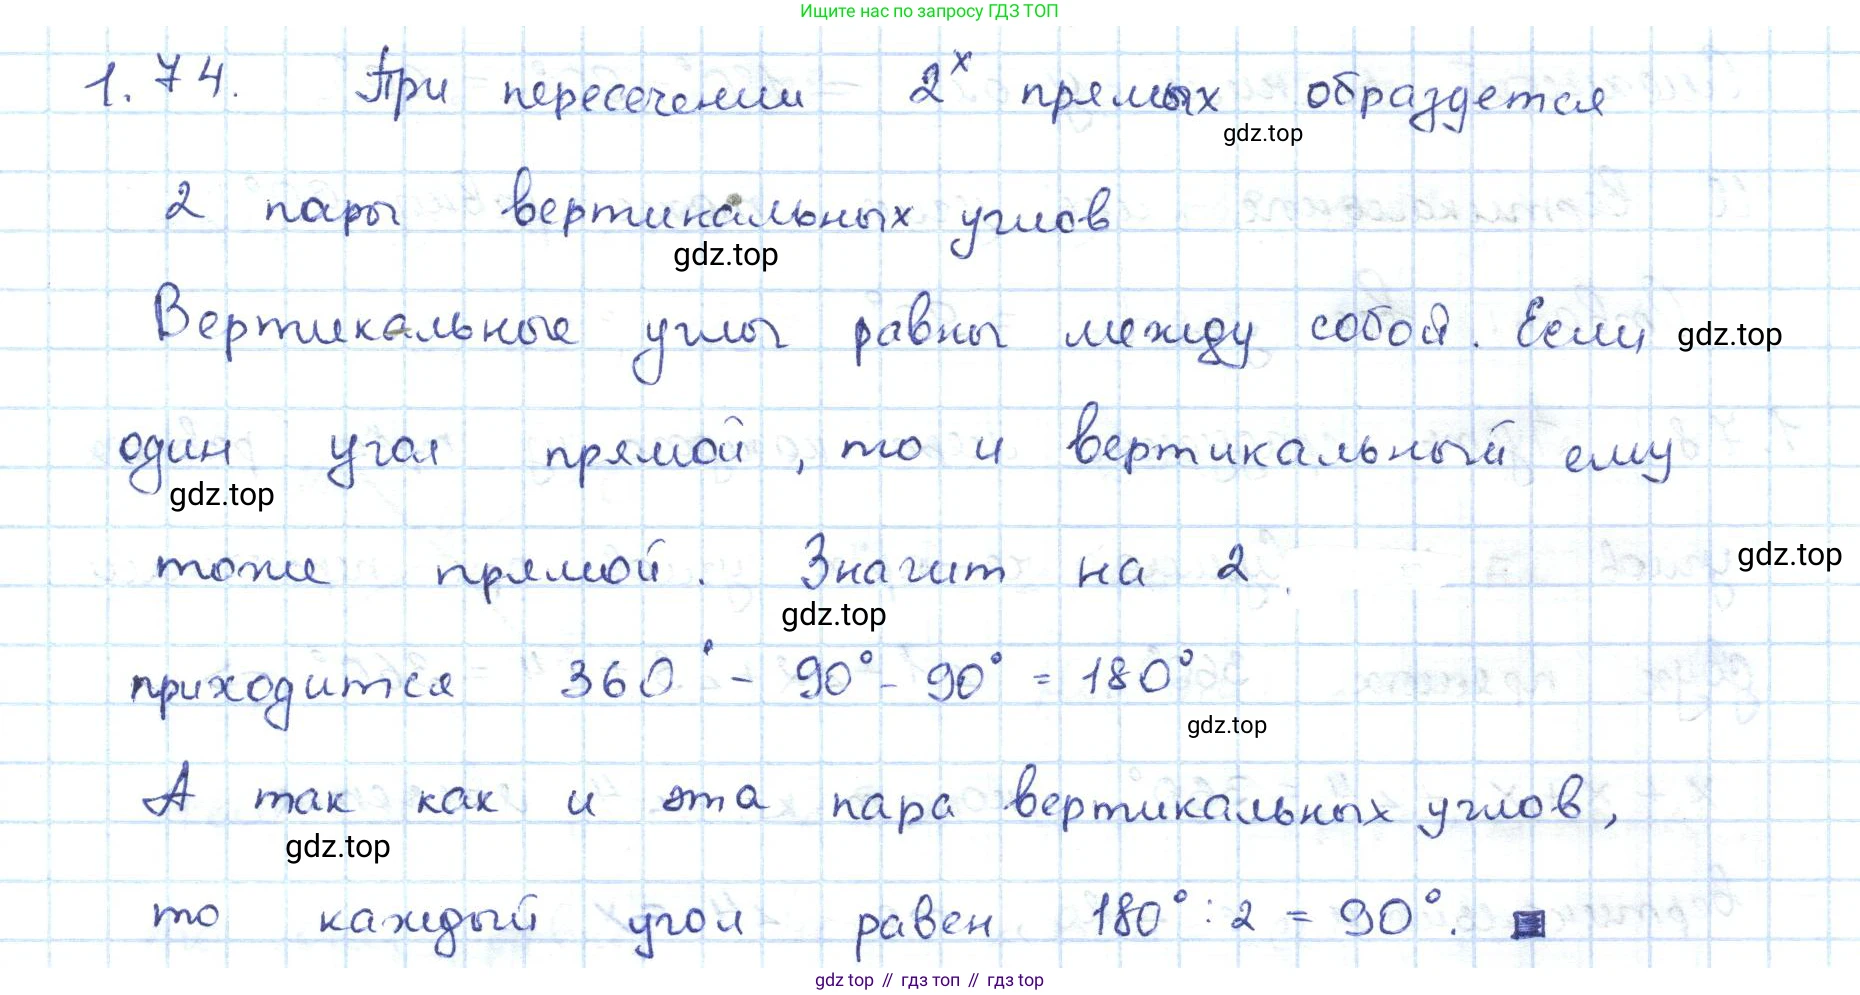 Ищите нас по запросу ГДЗ ТОП
1.74. При пересечении 2х прямых образдется
gdz.top
2 пары вертикальных углов
gdz.top
Вертикальные углы равны между собой. Если
gdz.top
один угол прямой, то и вертикальный ему
gdz.top
тоже прямой. Значит на 2
gdz.top
gdz.top
приходится 360° - 90° - 90° = 180°
gdz.top
А так как и эта пара вертикальных углов,
gdz.top
то каждый угол равен 180° : 2 = 90°.
gdz top // гдз топ // гдз top